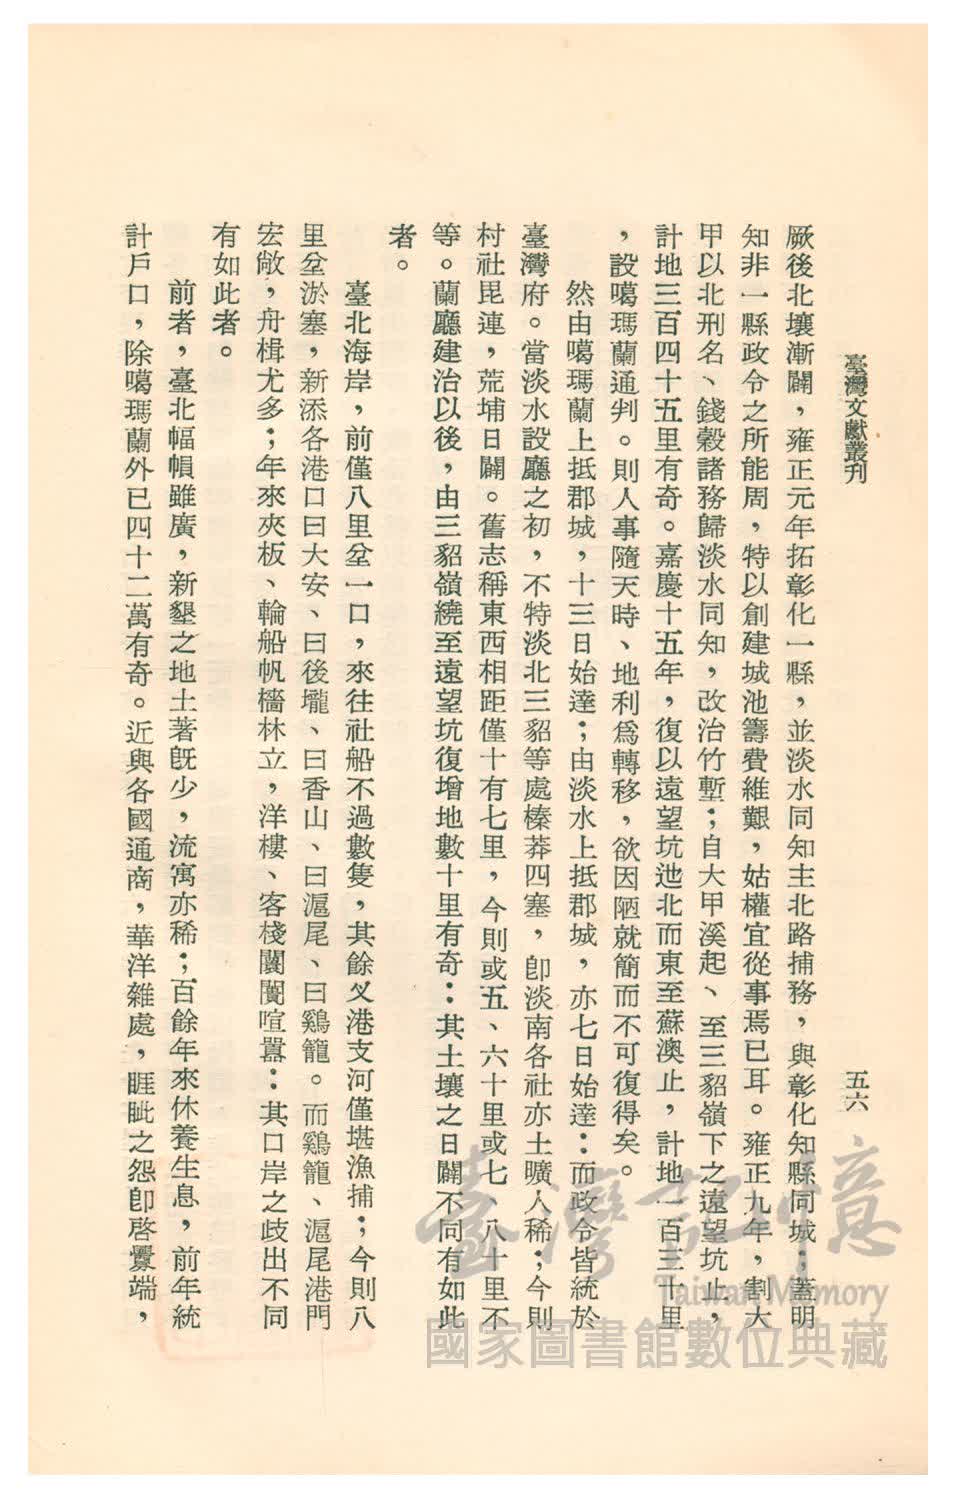 臺灣文獻叢刊
五六
厥後北壤漸闢，雍正元年拓彰化一縣，並淡水同知主北路捕務，與彰化知縣同城；蓋明
知非一縣政令之所能周，特以創建城池籌費維艱，姑權宜從事焉已耳。雍正九年，割大
甲以北刑名、錢穀諸務歸淡水同知，改治竹塹；自大甲溪起、至三貂嶺下之遠望坑止，
計地三百四十五里有奇。嘉慶十五年，復以遠望坑迆北而東至蘇澳止，計地一百三十里
，設噶瑪蘭通判。則人事隨天時、地利爲轉移，欲因陋就簡而不可復得矣。
然由噶瑪蘭上抵郡城，十三日始達；由淡水上抵郡城，亦七日始達：而政令皆統於
臺灣府。當淡水設廳之初，不特淡北三貂等處榛莽四塞，卽淡南各社亦土曠人稀；今則
村社毘連，荒埔日闢。舊志稱東西相距僅十有七里，今則或五、六十里或七、八十里不
等。蘭廳建治以後，由三貂嶺繞至遠望坑復增地數十里有奇：其土壤之日闢不同有如此
者。
臺北海岸，前僅八里坌一口，來往社船不過數隻，其餘叉港支河僅堪漁捕；今則八
里坌淤塞，新添各港口曰大安、曰後壠、曰香山、曰滬尾、曰鷄籠。而鷄籠、滬尾港門
宏敞，舟楫尤多；年來夾板、輪船帆檣林立，洋樓、客棧闤闠喧囂：其口岸之歧出不同
有如此者。
前者，臺北幅幀雖廣，新墾之地土著旣少，流寓亦稀；百餘年來休養生息，前年統
計戶口，除噶瑪蘭外已四十二萬有奇。近與各國通商，華洋雜處，睚眦之怨卽啓釁端，
臺灣記憶
Taiwan Memory
國家圖書館數位典藏